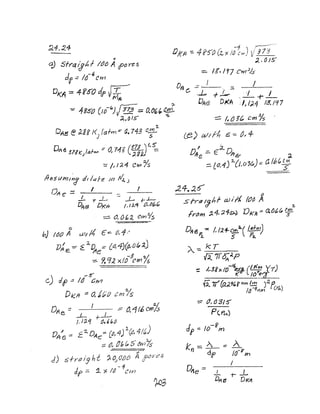 24.24
a) Straight 100 Å pores
dp = 10⁻⁶ cm
D_KA = 4850 dp √(T/M_A)
= 4850 (10⁻⁶) √(373/2.015) = 0.066 cm²/s
D_AB @ 288 K, 1 atm = 0.743 cm²/s
D_AB 373K, 1 atm = 0.748 (373/288)^1.5
= 1.124 cm²/s
Assuming dilute in H₂,
D_Ae = 1/(1/D_AB + 1/D_KA) = 1/(1/1.124 + 1/0.066)
= 0.062 cm²/s
b) 100 Å with ε = 0.4:
D'_Ae = ε² D_Ae = (0.4)²(0.062)
= 9.92 × 10⁻³ cm²/s
c) dp = 10⁻⁵ cm
D_KA = 0.660 cm²/s
D_Ae = 1/(1/1.124 + 1/0.660) = 0.416 cm²/s
D'_Ae = ε² D_Ae = (0.4)²(0.416)
= 0.0665 cm²/s
d) straight 20,000 Å pores
dp = 2 × 10⁻⁴ cm
D_KA = 4850 (2 × 10⁻⁴ cm) √(373/2.015)
= 13.197 cm²/s
D_Ae = 1/(1/D_AB + 1/D_KA) = 1/(1/1.124 + 1/13.197)
= 1.036 cm²/s
(e) with ε = 0.4
D'_Ae = ε² D_Ae
= (0.4)²(1.036) = 0.166 cm²/s
24.25
straight with 100 Å
from 24.24a) D_KA = 0.066 cm²/s
λ = KT/(√2 π σ_A² P)
= 0.0315
P (Pa)
dp = 10⁻⁸ m
Kn = λ/dp = λ/10⁻⁸ m
D_Ae = 1/(1/D_AB + 1/D_KA)